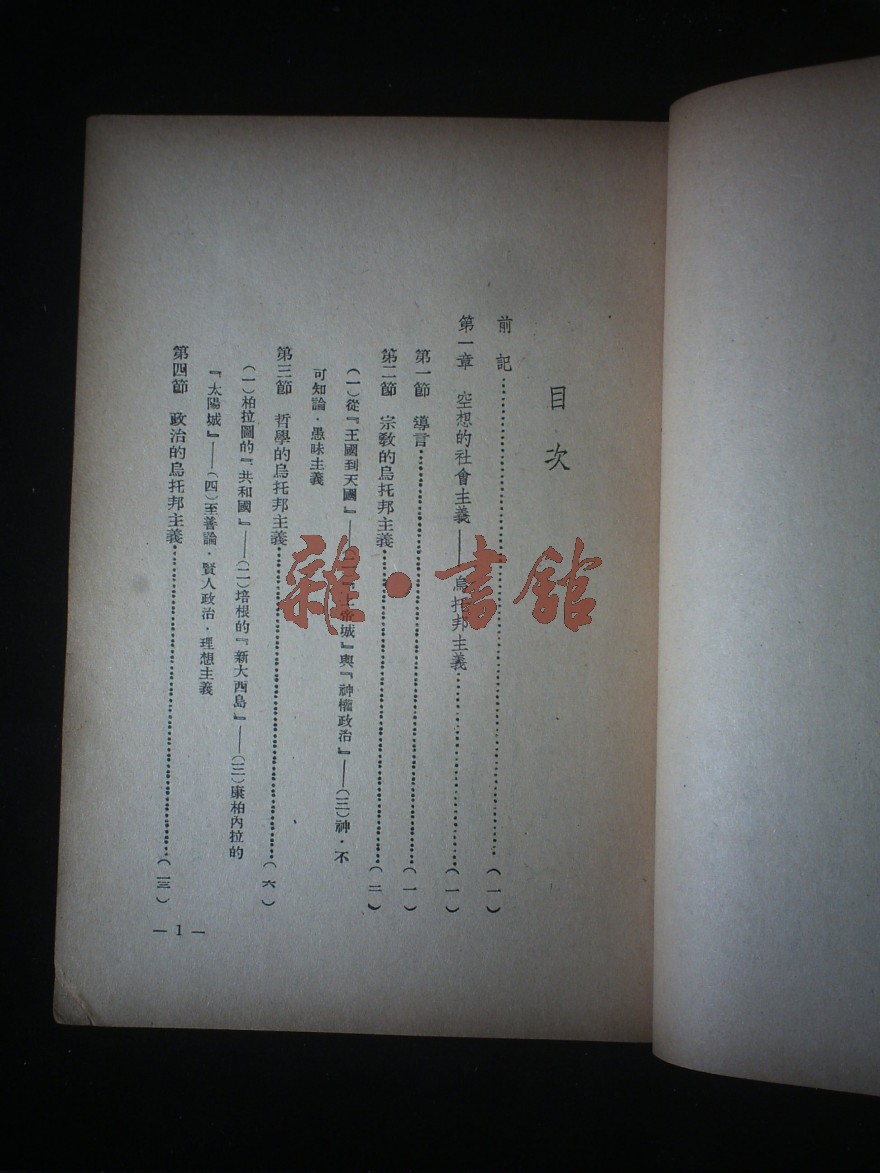 目次
前記……(一)
第一章 空想的社會主義——烏托邦主義……(一)
第一節 導言……(一)
第二節 宗教的烏托邦主義……(二)
(一)從『王國到天國』——(二)『上帝城』與『神權政治』——(三)神·不
可知論·愚昧主義
第三節 哲學的烏托邦主義……(六)
(一)柏拉圖的『共和國』——(二)培根的『新大西島』——(三)康柏內拉的
『太陽城』——(四)至善論·賢人政治·理想主義
第四節 政治的烏托邦主義……(一三)
— 1 —
雜·書館